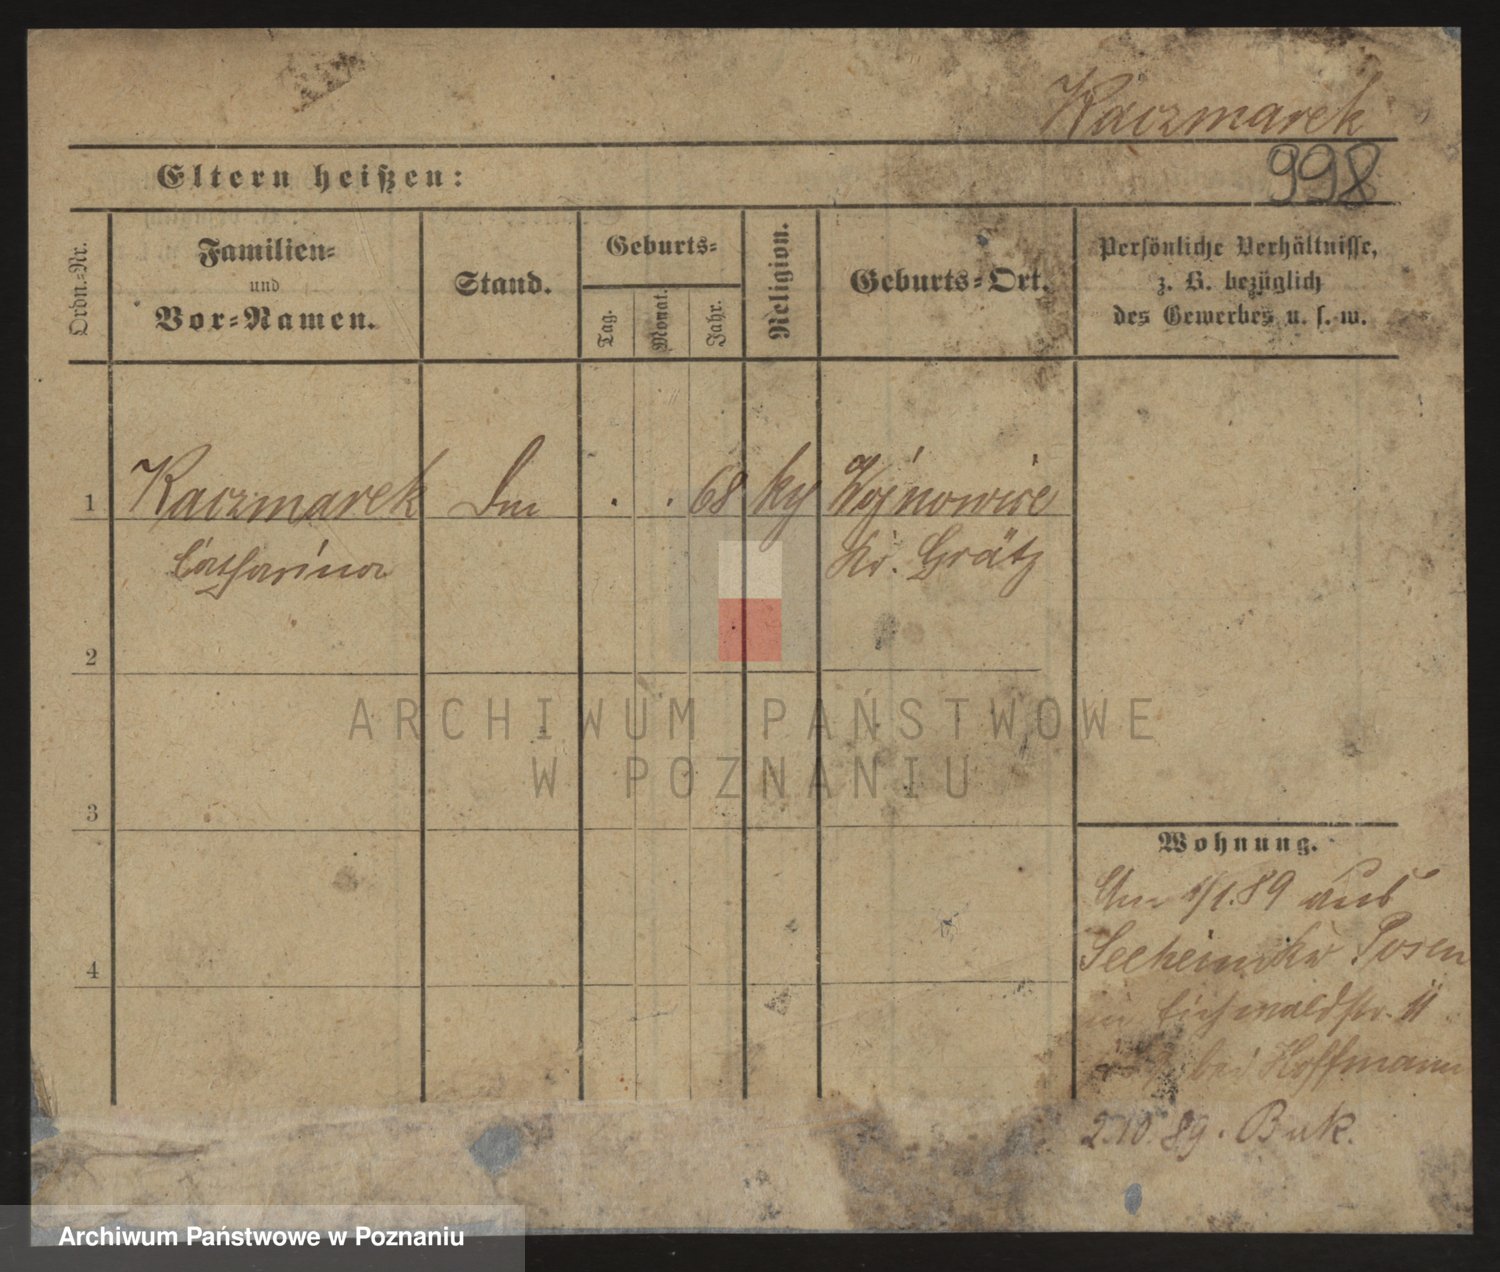 Kaczmarek
998
Eltern heißen:
Ordn.-Nr.
Familien-
und
Vor-Namen.
Stand.
Geburts-
Tag.
Monat.
Jahr.
Religion.
Geburts-Ort.
Persönliche Verhältnisse,
z. B. bezüglich
des Gewerbes u. s. w.
1 Kaczmarek 68 Wojnowice
Catharina Kr. Grätz
2
3
4
Wohnung.
Am 1/1.89 aus
Seeheim Kr Posen
in Eichwaldstr. 11
bei Hoffmann
2.10.89. Buk.
ARCHIWUM PAŃSTWOWE
W POZNANIU
Archiwum Państwowe w Poznaniu